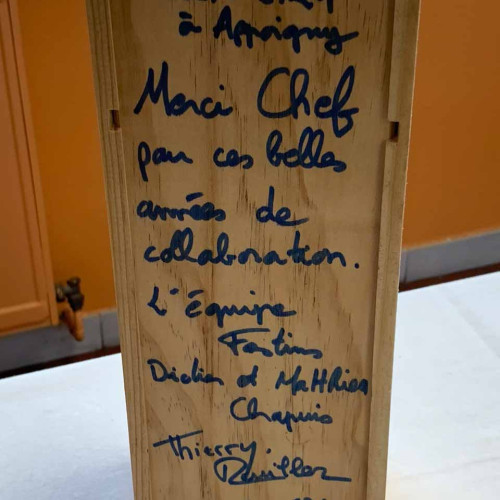 à Appoigny
Merci Chef
pour ces belles
années de
collaboration.
L'équipe
Festins
Didier et Matthieu
Chapuis
Thierry